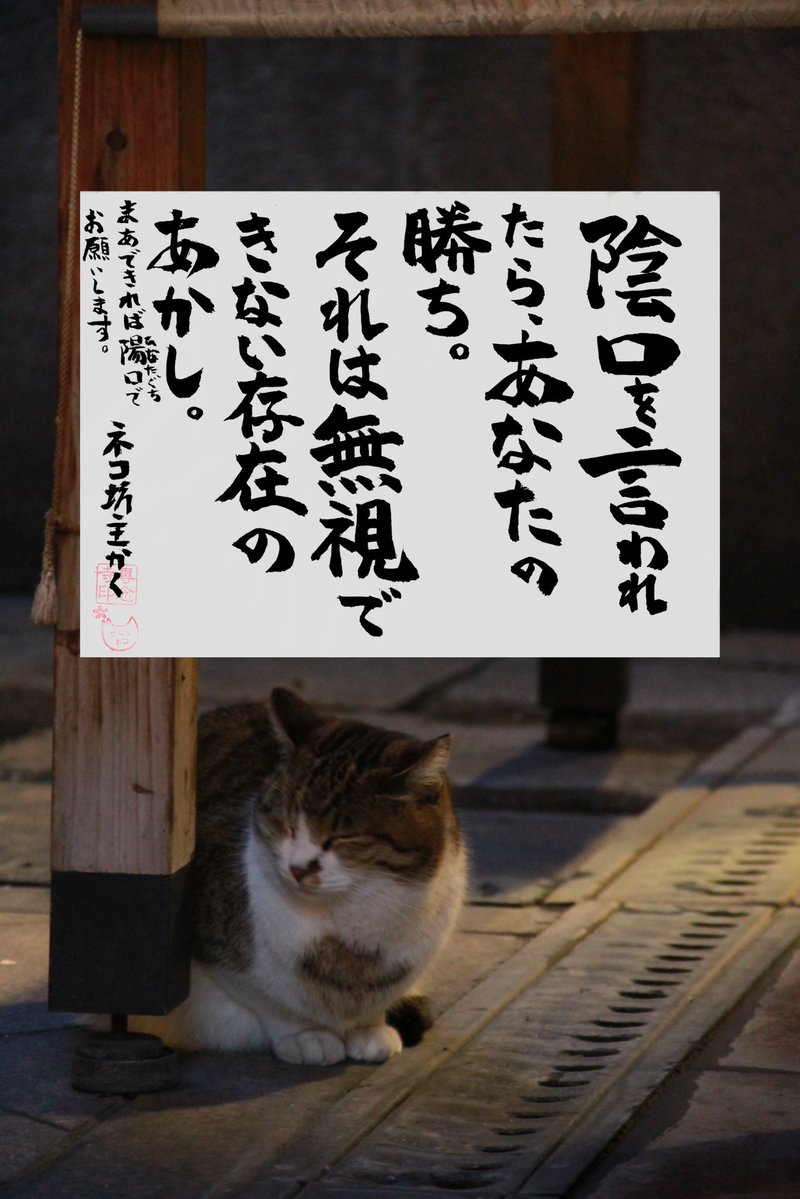 陰口を言われ
たら、あなたの
勝ち。
それは無視で
きない存在の
あかし。
まあできれば陽口で
ひなたぐち
お願いします。
ネコ坊主かく